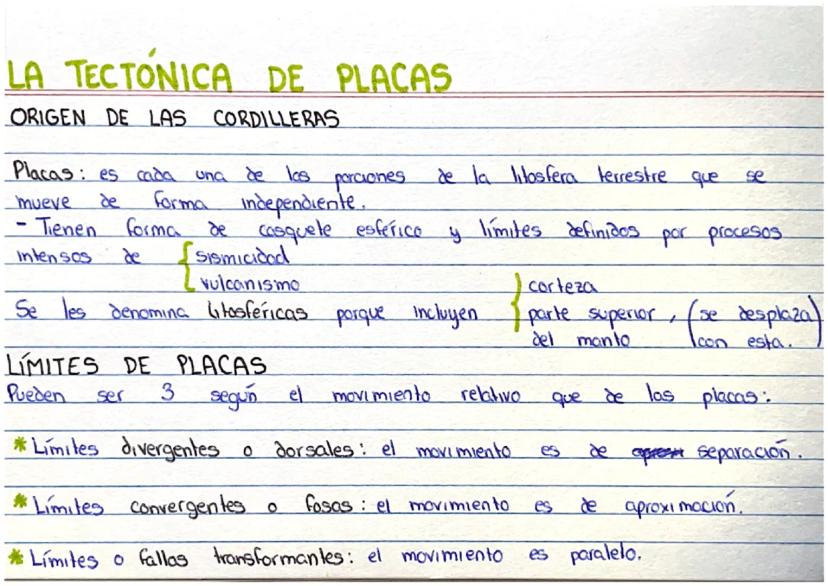 LA TECTÓNICA DE PLACAS
ORIGEN DE LAS CORDILLERAS
Placas: es cada una de las porciones de la litosfera terrestre que se
mueve de forma independiente.
- Tienen forma de casquete esférico y límites definidos por procesos
intensos de { sismicidad
vulcanismo
Se les denomina litosféricas porque incluyen } corteza
parte superior, (se desplaza)
del manto (con esta.)
LÍMITES DE PLACAS
Pueden ser 3 según el movimiento relativo que de las placas:
* Límites divergentes o dorsales: el movimiento es de separación.
* Límites convergentes o fosas: el movimiento es de aproximación.
* Límites o fallas transformantes: el movimiento es paralelo.